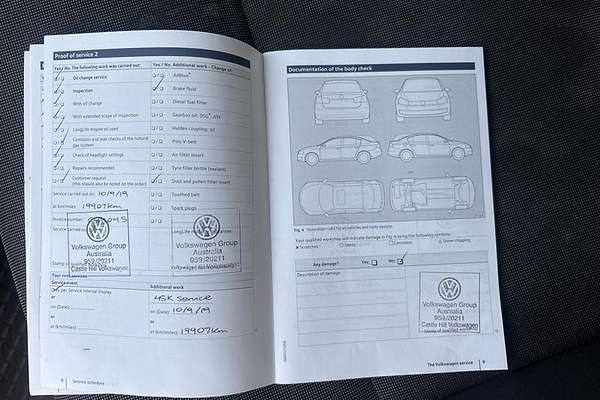 Proof of service 2
Yes / No The following work was carried out:
Yes / No Additional work - Change of:
Oil change service
AdBlue®
Inspection
Brake fluid
With oil change
Diesel fuel filter
With extended scope of inspection
Gearbox oil: DSG®, ATF
LongLife engine oil used
Haldex coupling: oil
Corrosion and leak checks of the natural
gas system
Poly V-belt
Check of headlight settings
Air filter insert
Repairs recommended
Tyre filler bottle (sealant)
Customer request
(this should also be noted on the order)
Dust and pollen filter insert
Service carried out on: 10/9/19
Toothed belt
at km/miles: 19907km
Spark plugs
Invoice number
Volkswagen Group
Australia
959/20211
Castle Hill Volkswagen
Volkswagen Group
Australia
959/20211
Your next services
Service event
Additional work
As per Service Interval Display
45K Service
or
on (Date):
on (Date): 10/9/19
or
or
at (km/miles):
at (km/miles): 19907km
8
Service schedule
Documentation of the body check
Fig. 4 Illustration valid for all vehicles and body designs.
Your qualified workshop will indicate damage in Fig. 4 using the following symbols:
Scratches
Dents
Corrosion
Stone chipping
Any damage?
Yes:
No:
Description of damage:
Volkswagen Group
Australia
959/20211
Castle Hill Volkswagen
Stamp of qualified workshop
The Volkswagen service
9